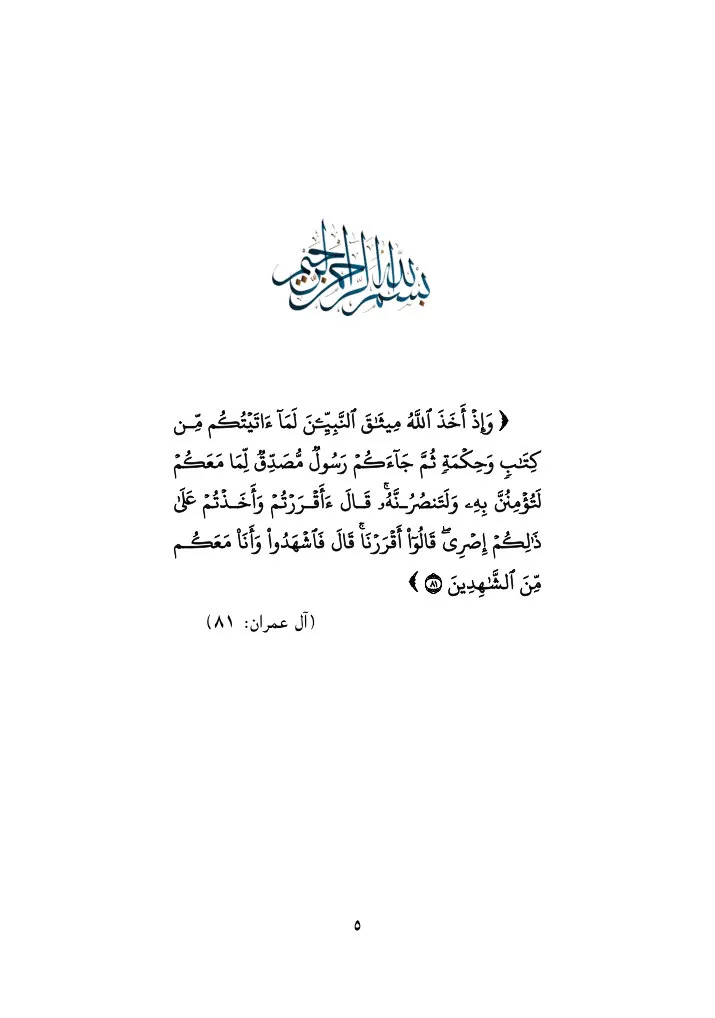 بسم الله الرحمن الرحيم
﴿ وَإِذْ أَخَذَ ٱللَّهُ مِيثَٰقَ ٱلنَّبِيِّـۧنَ لَمَآ ءَاتَيْتُكُم مِّن
كِتَٰبٖ وَحِكْمَةٖ ثُمَّ جَآءَكُمْ رَسُولٞ مُّصَدِّقٞ لِّمَا مَعَكُمْ
لَتُؤْمِنُنَّ بِهِۦ وَلَتَنصُرُنَّهُۥۚ قَالَ ءَأَقْرَرْتُمْ وَأَخَذْتُمْ عَلَىٰ
ذَٰلِكُمْ إِصْرِيۖ قَالُوٓاْ أَقْرَرْنَاۚ قَالَ فَٱشْهَدُواْ وَأَنَا۠ مَعَكُم
مِّنَ ٱلشَّٰهِدِينَ ٨١ ﴾
(آل عمران: ٨١)
٥